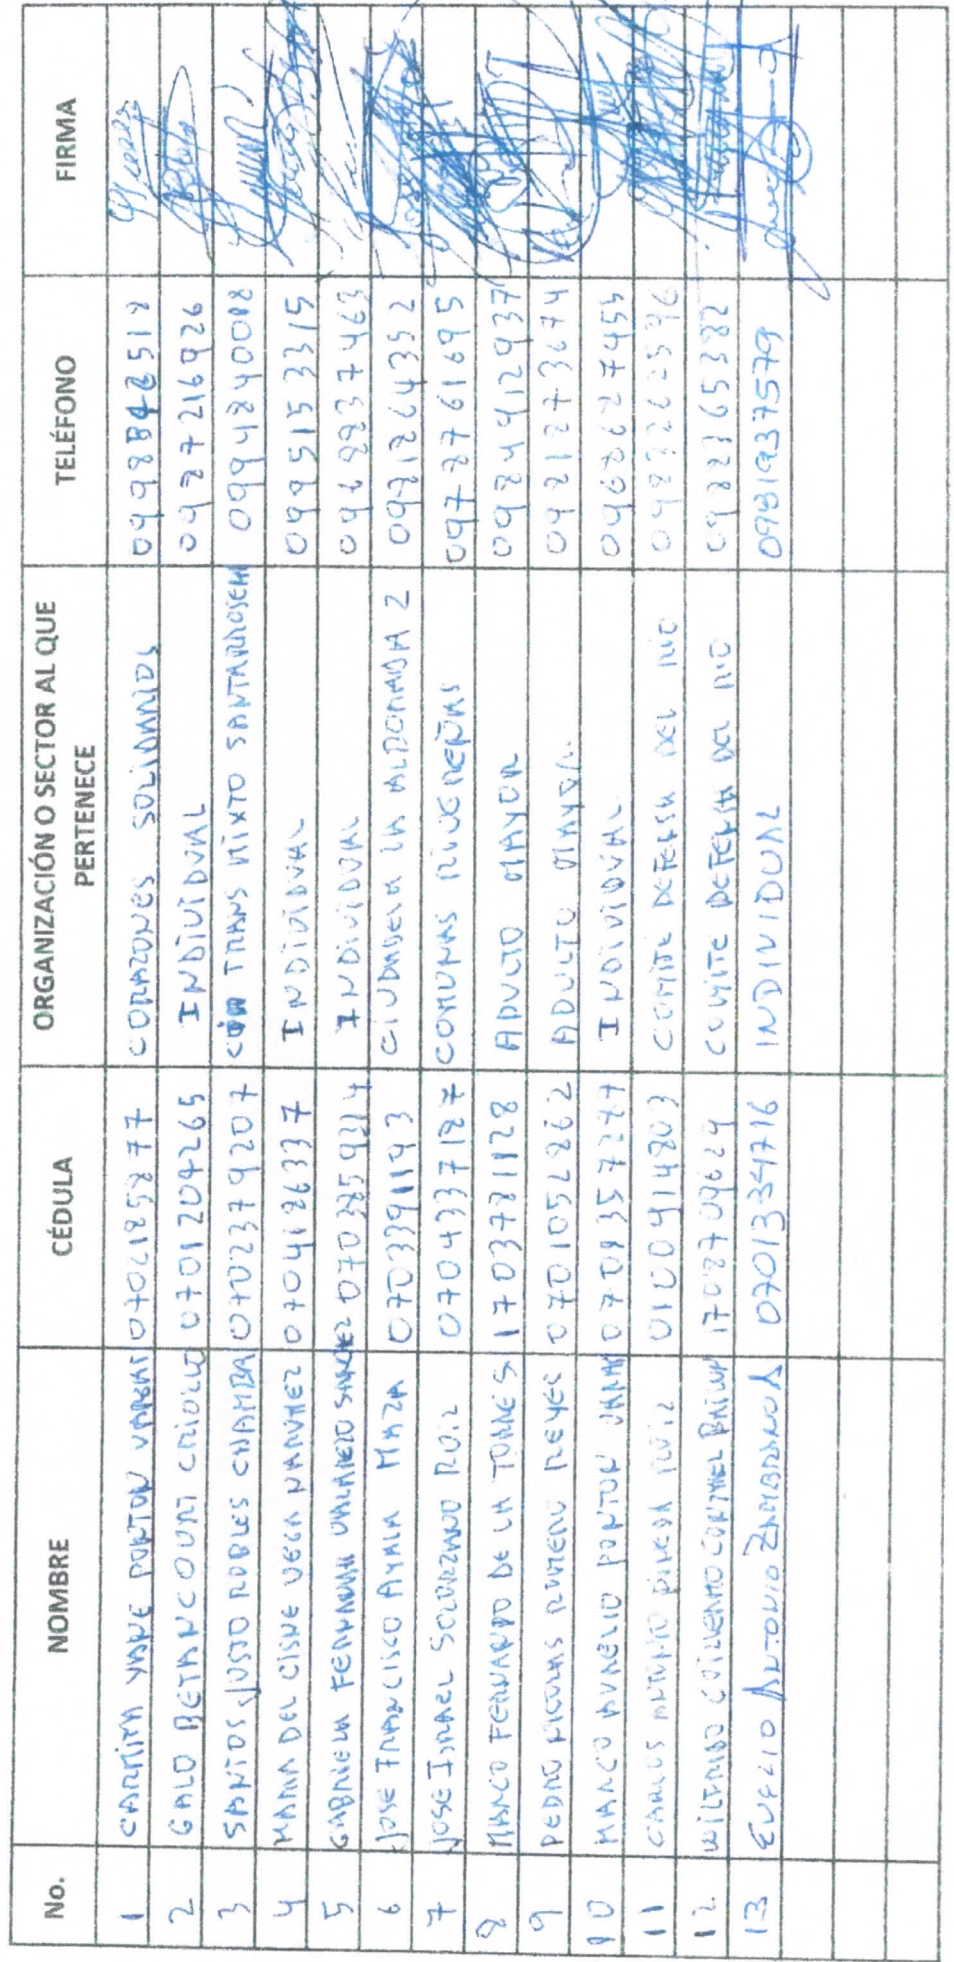 No. NOMBRE CÉDULA ORGANIZACIÓN O SECTOR AL QUE PERTENECE TELÉFONO FIRMA
1 CARMITA YANE PONTON VARGAS 0702185877 CORAZONES SOLIDARIOS 0998842518
2 GALO BETANCOURT CRIOLLO 0701204265 INDIVIDUAL 0987216926
3 SANTOS JUSTO ROBLES CHAMBA 0702379207 TRANS MIXTO SANTARROSEÑ 0994840088
4 MARIA DEL CISNE VEGA NARVAEZ 0704186337 INDIVIDUAL 0995153315
5 GABRIELA FERNANDA VALAREZO SANCHEZ INDIVIDUAL 0968837463
6 JOSE FRANCISCO AYALA MAZA 0703391193 CIUDADELA LA ALBORADA 2 0981264352
7 JOSE ISRAEL SOLORZANO RUIZ 0704337187 COMUNAS RIVEREÑAS 0978761695
8 MARCO FERNANDO DE LA TORRE S 1703781128 ADULTO MAYOR 0984412937
9 PEDRO NICOLAS ROMERO REYES 0701052862 ADULTO MAYOR 0981273674
10 MARCO AURELIO PONTON INDIVIDUAL 0968627455
11 CARLOS ANTONIO PINEDA RUIZ 0100914803 COMITE DEFENSA DEL RIO
12 WILFRIDO GUILLERMO 1702709629 COMITE DEFENSA DEL RIO 0982365382
13 EUGLIO ANTONIO ZAMBRANO A 0701334716 INDIVIDUAL 0981937579